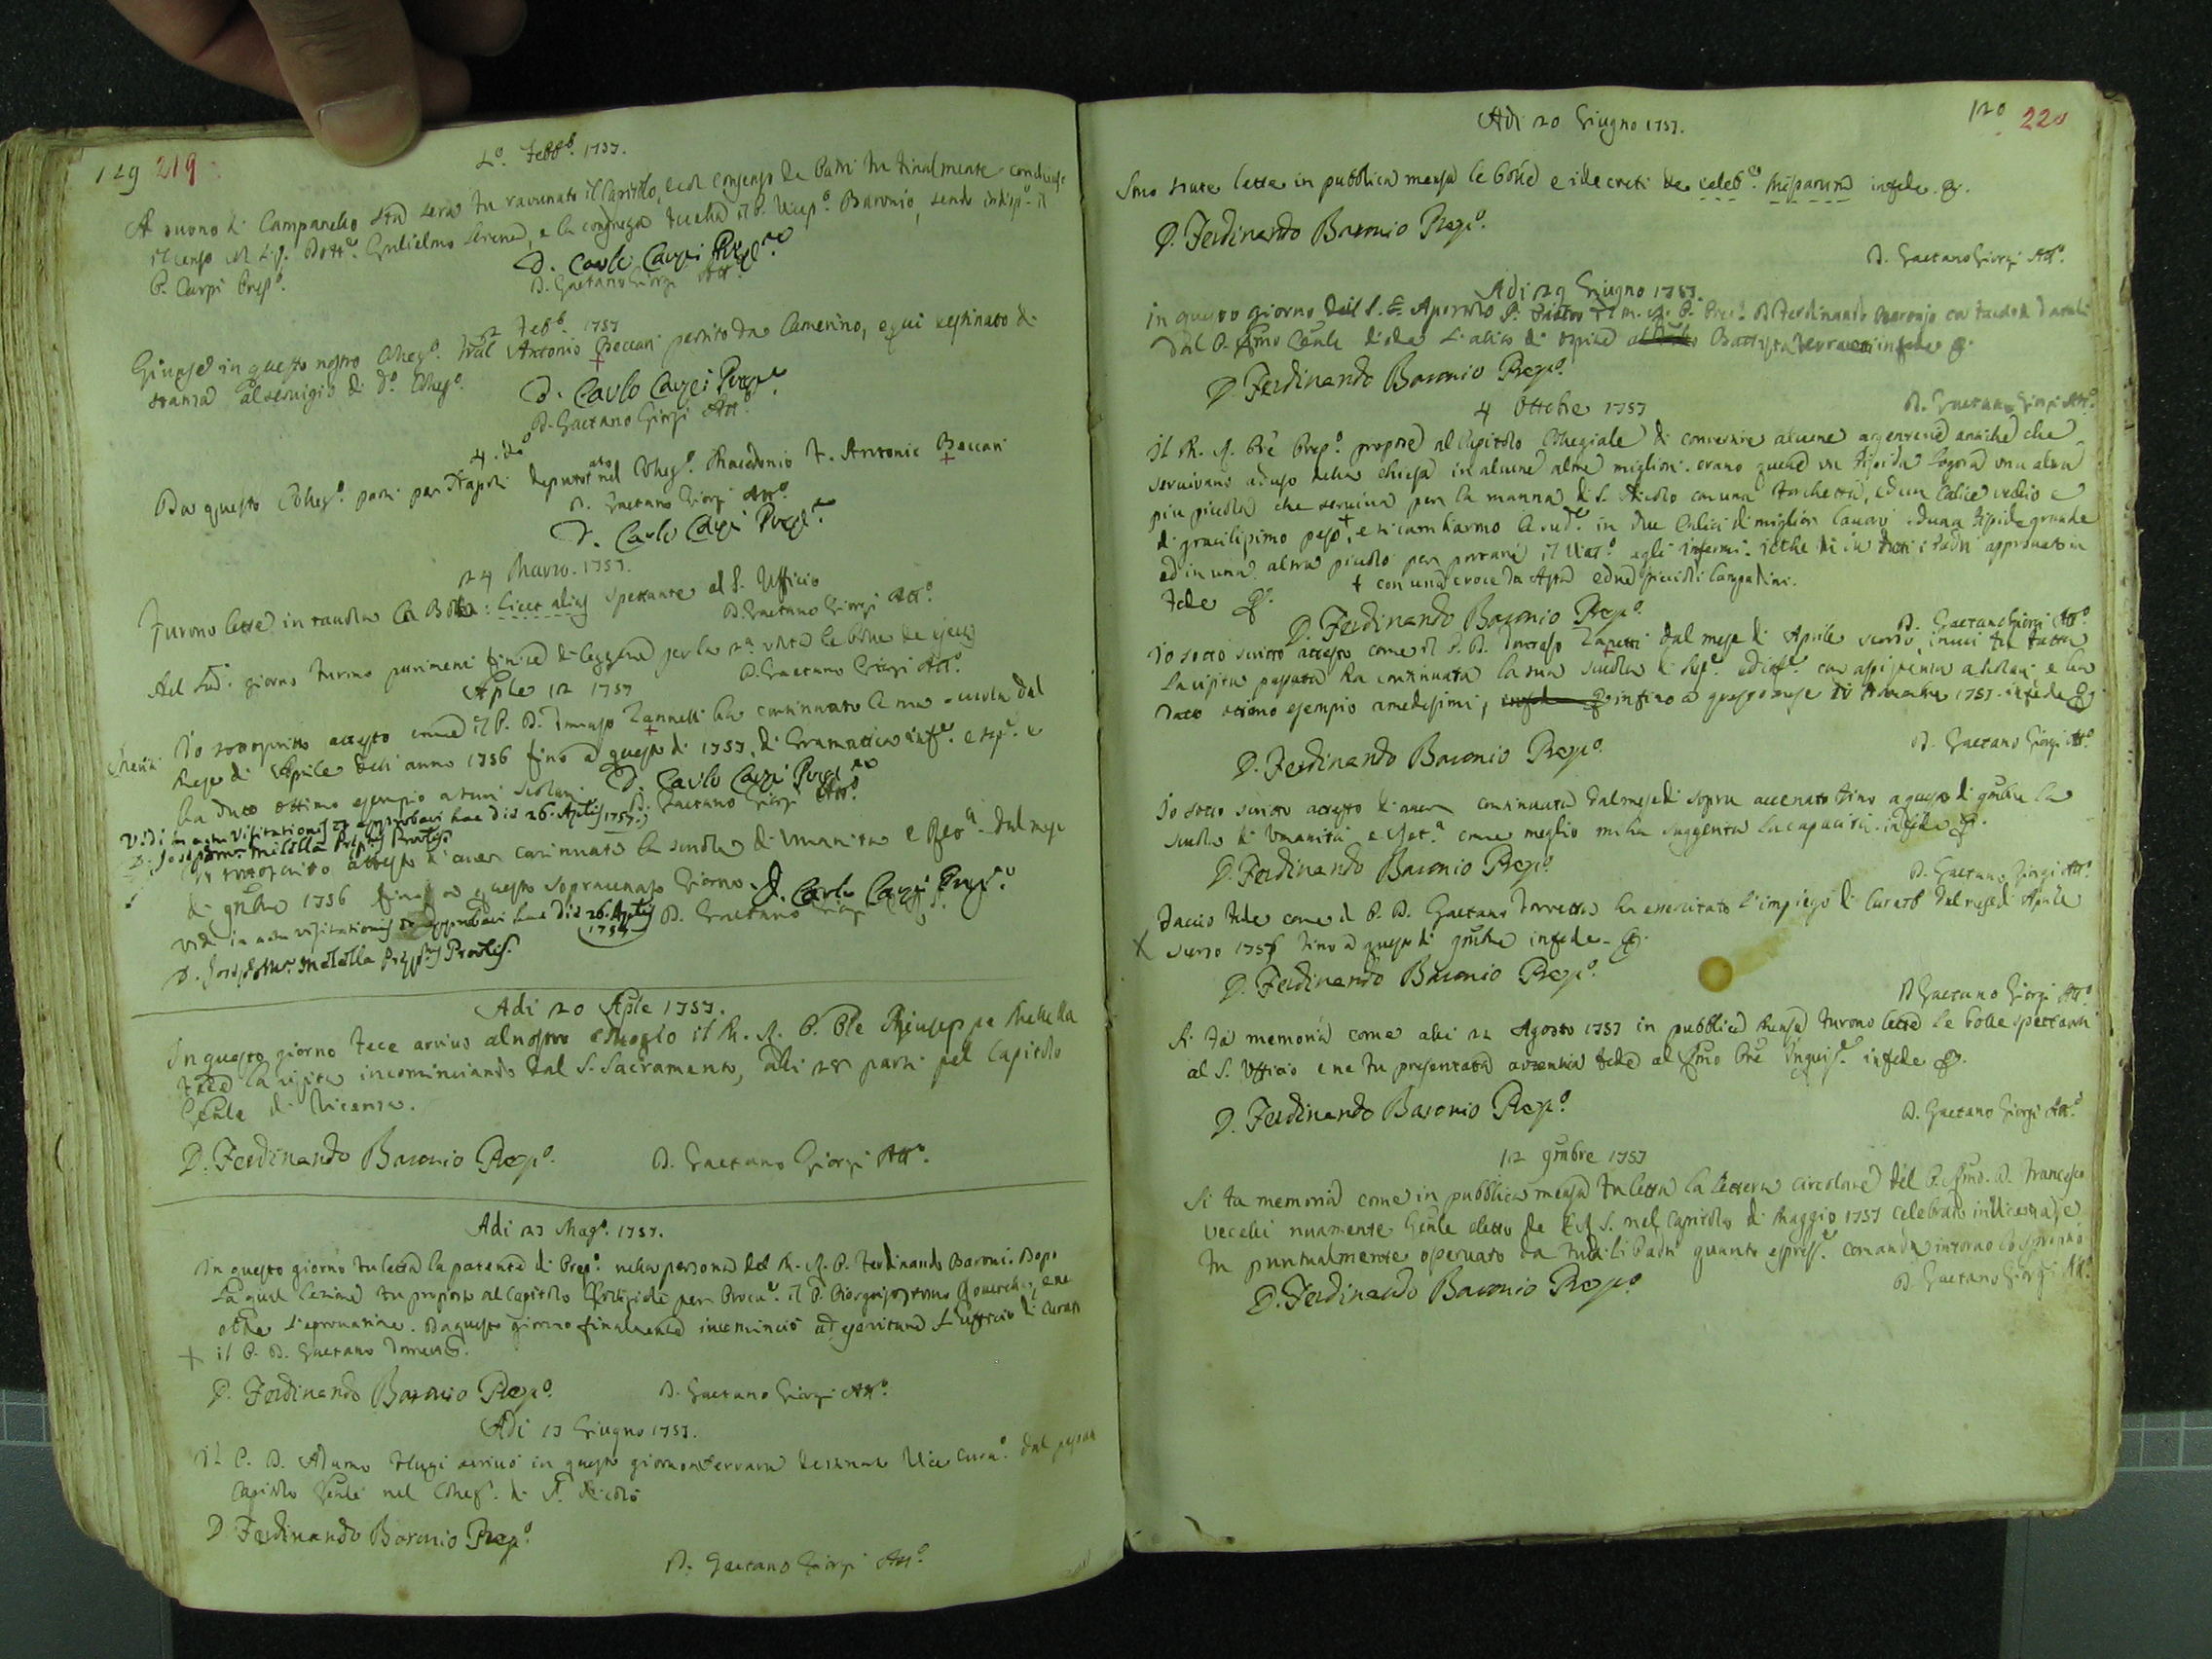 129 219
Lo. Febbo. 1757.
A suono di Campanello stà sera fu ravunato il Capitolo, e col consenso de Padri fu finalmente concluso
il censo col Sig. Dotte. Gulielmo e la congrega fu eletta il P. Vicepo. Baronio, sendo indispo. il
P. Carpi Prepo.
D. Carlo Carpi Prepto
D. Gaetano Giorgi Atto.
2 Febb. 1757
Giunse in questo nostro Collego. Antonio Beccari partito da Camerino, e qui destinato di
stanza al servigio di do. Collego.
D. Carlo Carpi Prepto
D. Gaetano Giorgi Atto.
4. do
Da questo Collego. partì per Napoli deputato nel Collego. Macedonio F. Antonio Beccari
D. Gaetano Giorgi Atto.
D. Carlo Carpi Prepto
24 Marzo. 1757.
Furono lette in tavola la Bolla: Licet alias spettante al S. Ufficio
D. Gaetano Giorgi Atto.
Nel sud. giorno furono parimenti finite di leggere per la 2a volta le bolle de
D. Gaetano Giorgi Atto.
Aple 12 1757
Io sottoscritto attesto come il P. D. Tomaso Zannetti ha continuato la sua scuola dal
Mese di Aprile dell anno 1756 fino a questo di 1757. di Gramatica infe. e supe. e
ha dato ottimo esempio a suoi scolari.
D. Carlo Carpi Prepto
D. Gaetano Giorgi Atto.
Vidi in actu visitationis et approbavi hac die 26. Aplis 1757.
D. Joseph Ma. Melella Preptus Provlis
Io sottoscritto attesto di aver continuato la scuola di Umanità e Reta. dal mese
di 9mbre 1756 fino a questo sopracenato Giorno.
D. Carlo Carpi Prepo.
Vidi in actu visitationis et approbavi hac die 26. Aplis 1757
D. Gaetano Giorgi
D. Joseph Ma. Melella Preptus Provlis.
Adi 20 Aple 1757.
In questo giorno fece arrivo al nostro Collegio il M. R. P. Ple Giuseppe Melella
fece la visita incominciando dal S. Sacramento, alli 28 partì pel Capitolo
Genle di Vicenza.
D. Ferdinando Baronio Prepo.
D. Gaetano Giorgi Atto.
Adi 23 Mago. 1757.
In questo giorno fu letta la patente di Prepo. nella persona del M. R. P. Ferdinando Baroni. Dopo
la qual lezione fu proposto al Capitolo Collegiale per Procue. il P. ene
ebbe l'aprovazione. Da questo giorno finalmente incominciò ad esercitare l'Ufficio di Curato
+ il P. D. Gaetano
D. Ferdinando Baronio Prepo.
D. Gaetano Giorgi Atto.
Adi 13 Giugno 1757.
Il P. D. Adamo arrivò in questo giorno a Ferrara destinato Vice Curao. dal passato
Capitolo Genle nel Collego. di S. Nicolò
D Ferdinando Baronio Prepo
D. Gaetano Giorgi Atto.
120 220
Adi 20 Giugno 1757.
Sono state lette in pubblica mensa le bolle e i decreti de celebe. Missarum in fede &.
D. Ferdinando Baronio Prepo.
D. Gaetano Giorgi Atto.
Adi 29 Giugno 1757.
In questo giorno del S. Apostolo S. Pietro il M. R. P. Prepo. D. Ferdinando Baronio con facoltà datali
dal P. Rmo Genle diede l'abito di ospite Battista in fede &.
D. Ferdinando Baronio Prepo.
D. Gaetano Giorgi Atto.
4 Ottobre 1757
Il M. R. Pre Prepo. propose al Capitolo Collegiale di convertire alcune argenterie antiche che
servivano ad uso della chiesa in alcune altre migliori. erano queste una Piside logora una altra
più piccola che serviva per la manna di S. Nicolo con una forchetta, ed un Calice vechio e
di gracilissimo peso, + e si cambiarono le sude. in due Calici di miglior lavoro. d'una Piside grande
ed in una altra piccola per portare il Viato. agli infermi. il che fu da tutti i Padri approvato in
fede &.
+ con una croce da Asta ed piccioli lampadini.
D. Ferdinando Baronio Prepo.
D. Gaetano Giorgi Atto
Io sotto scritto attesto come il P. D. Tomaso Zanetti dal mese di Aprile scorso, in cui fu fatta
la visita passata ha continuata la sua scuola di Supe. ed infe. con assistenza a scolari, e ha
dato ottimo esempio a medesimi, infino a questo mese di Novembre 1757. in fede &
D. Ferdinando Baronio Prepo.
D. Gaetano Giorgi Atto
Io sotto scritto attesto di aver continuata dal mese di sopra accenato fino a questo di 9mbre la
scuola di Umanità e Reta. come meglio mi ha suggerito la capacità. in fede &.
D. Ferdinando Baronio Prepo.
D. Gaetano Giorgi Atto.
Faccio fede come il P. D. Gaetano ha essercitato l'impiego di Curato dal mese di Aprile
X scorso 1756 fino a questo di 9mbre in fede. &.
D. Ferdinando Baronio Prepo.
D Gaetano Giorgi Atto
Si fa memoria come alli 22 Agosto 1757 in pubblica Mensa furono lette le bolle spettanti
al S. Ufficio e ne fu presentata autentica fede al Rmo Pre Inquise. in fede &.
D. Ferdinando Baronio Prepo.
D. Gaetano Giorgi Atto.
12 9mbre 1757
Si fa memoria come in pubblica mensa fu letta la lettera circolare del P. Rmo. D. Francesco
Vecelli nuamente Genle eletto nel Capitolo di Maggio 1757 celebrato in Vicenza, e
fu puntualmente osservato da tutti li Padri quanto espresse. comanda intorno lo
D. Ferdinando Baronio Prepo.
D. Gaetano Giorgi Atto.